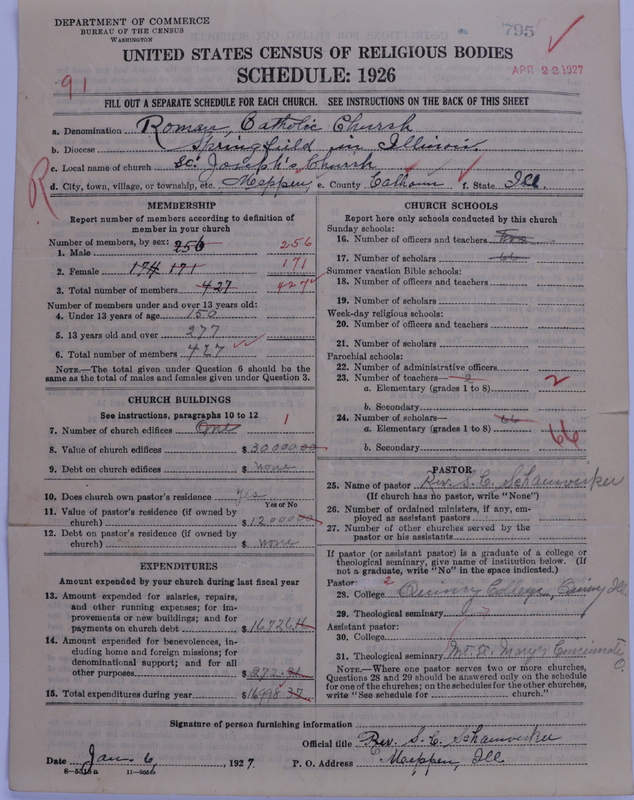 DEPARTMENT OF COMMERCE
BUREAU OF THE CENSUS
WASHINGTON
795
APR 22 1927
UNITED STATES CENSUS OF RELIGIOUS BODIES
SCHEDULE: 1926
91
FILL OUT A SEPARATE SCHEDULE FOR EACH CHURCH. SEE INSTRUCTIONS ON THE BACK OF THIS SHEET
a. Denomination Roman Catholic Church
b. Diocese Springfield in Illinois
c. Local name of church St. Joseph's Church
d. City, town, village, or township, etc. Meppen e. County Calhoun f. State Ill
R
MEMBERSHIP
Report number of members according to definition of member in your church
Number of members, by sex:
1. Male 256 256
2. Female 174 171 171
3. Total number of members 427 427
Number of members under and over 13 years old:
4. Under 13 years of age 150
5. 13 years old and over 277
6. Total number of members 427
NOTE.—The total given under Question 6 should be the
same as the total of males and females given under Question 3.
CHURCH BUILDINGS
See instructions, paragraphs 10 to 12
7. Number of church edifices One 1
8. Value of church edifices $ 30000.00
9. Debt on church edifices $ none
10. Does church own pastor's residence Yes
Yes or No
11. Value of pastor's residence (if owned by
church) $ 12000.00
12. Debt on pastor's residence (if owned by
church) $ none
EXPENDITURES
Amount expended by your church during last fiscal year
13. Amount expended for salaries, repairs,
and other running expenses; for im-
provements or new buildings; and for
payments on church debt $ 16726
14. Amount expended for benevolences, in-
cluding home and foreign missions; for
denominational support; and for all
other purposes $ 272
15. Total expenditures during year $ 16998
CHURCH SCHOOLS
Report here only schools conducted by this church
Sunday schools:
16. Number of officers and teachers Two
17. Number of scholars 66
Summer vacation Bible schools:
18. Number of officers and teachers
19. Number of scholars
Week-day religious schools:
20. Number of officers and teachers
21. Number of scholars
Parochial schools:
22. Number of administrative officers
23. Number of teachers— 2
a. Elementary (grades 1 to 8) 2
b. Secondary
24. Number of scholars— 66
a. Elementary (grades 1 to 8) 66
b. Secondary
PASTOR
25. Name of pastor Rev. S. C.
(If church has no pastor, write "None")
26. Number of ordained ministers, if any, em-
ployed as assistant pastors
27. Number of other churches served by the
pastor or his assistants
If pastor (or assistant pastor) is a graduate of a college or
theological seminary, give name of institution below. (If
not a graduate, write "No" in the space indicated.)
Pastor: 2
28. College Quincy College, Quincy Ill
29. Theological seminary
Assistant pastor:
30. College
31. Theological seminary Mt. St. Mary's Cincinnati O.
NOTE.—Where one pastor serves two or more churches,
Questions 28 and 29 should be answered only on the schedule
for one of the churches; on the schedules for the other churches,
write "See schedule for church."
Signature of person furnishing information
Official title Rev. S. C.
Date Jan. 6, 1927. P. O. Address Meppen, Ill